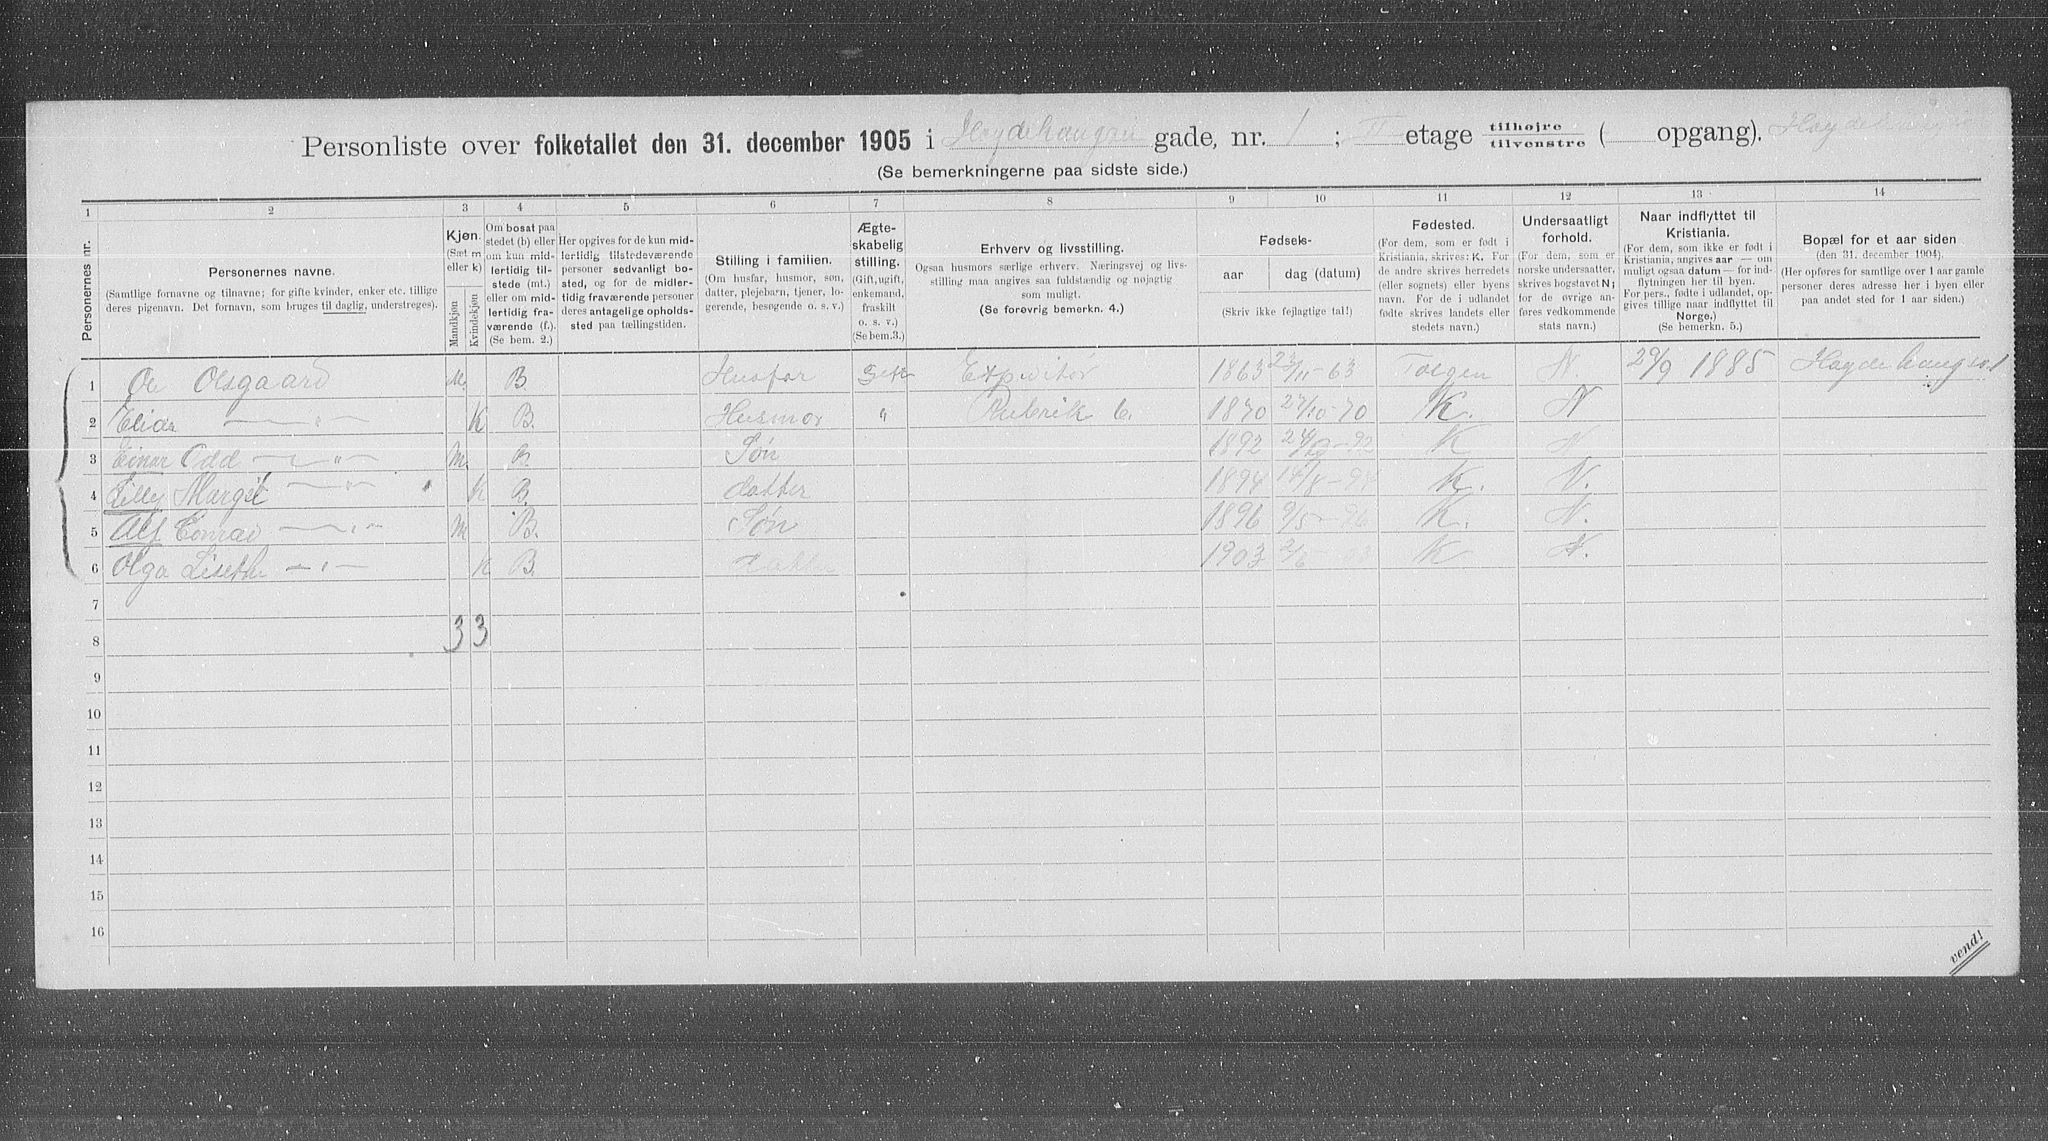 Personliste over folketallet den 31. december 1905 i Heydehaugsv gade, nr. 1; II etage tilhøjre/tilvenstre ( opgang).
(Se bemerkningerne paa sidste side.)
1 2 3 4 5 6 7 8 9 10 11 12 13 14
Personernes nr.
Personernes navne.
(Samtlige fornavne og tilnavne; for gifte kvinder, enker etc. tillige
deres pigenavn. Det fornavn, som bruges til daglig, understreges).
Kjøn.
(Sæt m
eller k)
Mandkjøn
Kvindekjøn
Om bosat paa
stedet (b) eller
om kun mid-
lertidig til-
stede (mt.)
eller om mid-
lertidig fra-
værende (f.).
(Se bem. 2.)
Her opgives for de kun mid-
lertidig tilstedeværende
personer sedvanligt bo-
sted, og for de midler-
tidig fraværende personer
deres antagelige opholds-
sted paa tællingstiden.
Stilling i familien.
(Om husfar, husmor, søn,
datter, plejebarn, tjener, lo-
gerende, besøgende o. s. v.)
Ægte-
skabelig
stilling.
(Gift, ugift,
enkemand,
fraskilt
o. s. v.)
(Se bem.3.)
Erhverv og livsstilling.
Ogsaa husmors særlige erhverv. Næringsvej og livs-
stilling maa angives saa fuldstændig og nøjagtig
som muligt.
(Se forøvrig bemerkn. 4.)
Fødsels-
aar dag (datum)
(Skriv ikke fejlagtige tal!)
Fødested.
(For dem, som er født i
Kristiania, skrives: K. For
de andre skrives herredets
(eller sognets) eller byens
navn. For de i udlandet
fødte skrives landets eller
stedets navn.)
Undersaatligt
forhold.
(For dem, som er
norske undersaatter,
skrives bogstavet N;
for de øvrige an-
føres vedkommende
stats navn.)
Naar indflyttet til
Kristiania.
(For dem, som ikke er født i
Kristiania, angives aar — om
muligt ogsaa datum — for ind-
flytningen her til byen.
For pers., fødte i udlandet, op-
gives tillige naar indflyttet til
Norge.)
(Se bemerkn. 5.)
Bopæl for et aar siden
(den 31. december 1904).
(Her opføres for samtlige over 1 aar gamle
personer deres adresse her i byen eller
paa andet sted for 1 aar siden.)
1 Ole Olsgaard M. B. Husfar Gift Expeditør 1863 23/11-63 Tolgen N 29/9 1885
2 Elida — " — K B. Husmor " 1870 27/10-70 K. N
3 Einar Odd — " — M. B. Søn 1892 K N
4 Lilly Margit — " — K B. datter 1894 K. N.
5 Alf Conrad — " — M B. Søn 1896 9/5-96 K. N.
6 Olga Liseth — " — K B. datter 1903 K N.
7
8 3 3
9
10
11
12
13
14
15
16
vend!